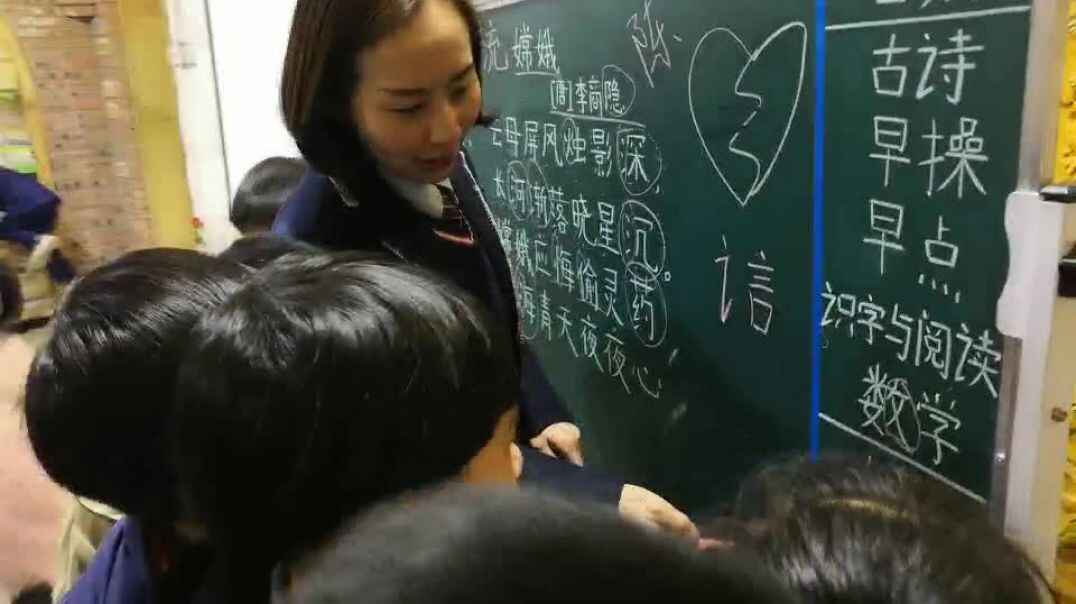 嫦娥
[唐]李商隐
云母屏风烛影深,
长河渐落晓星沉。
嫦娥应悔偷灵药
海青天夜夜心
讠言
古诗
早操
早点
识字与阅读
数学